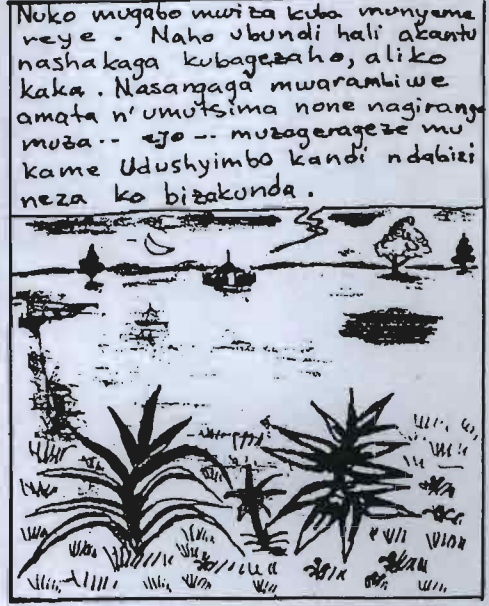 Nuko mugabo mwiza kuba munyeme
reye. Naho ubundi hali akantu
nashakaga kubagezaho, aliko
kaka. Nasangaga mwarambiwe
amata n'umutsima none nagirango
muza-- ejo -- muzagerageze mu
kame Udushyimbo kandi ndabizi
neza ko bizakunda.